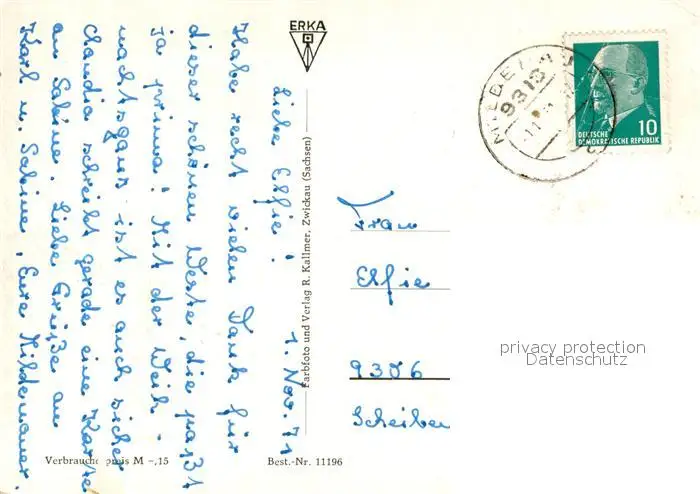 ERKA
1. Nov. 71
Liebe Elfie!
Habe recht vielen Dank für
dieser schönen Weste, die paßt
ja prima! Mit der Weih-
nachtsgans ist es auch sicher
Claudia schreibt gerade eine Karte
an Sabine. Liebe Grüße an
Karl u. Sabine, Eure Hildemaur.
Farbfoto und Verlag R. Kallmer, Zwickau (Sachsen)
Verbraucherpreis M -,15
Best.-Nr. 11196
9313
10
DEUTSCHE
DEMOKRATISCHE REPUBLIK
Frau
Elfie
9306
Scheiben
privacy protection
Datenschutz